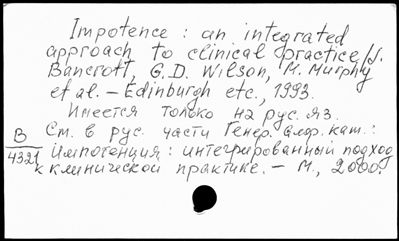 Impotence : an integrated
approach to clinical practice/J.
Bancroft, G.D. Wilson, M. Murphy
et al. – Edinburgh etc., 1993.
Имеется только на рус. яз.
См. в рус. части Генер. алф. кат.:
В
4321
Импотенция : интегрированный подход
к клинической практике. – М., 2000.